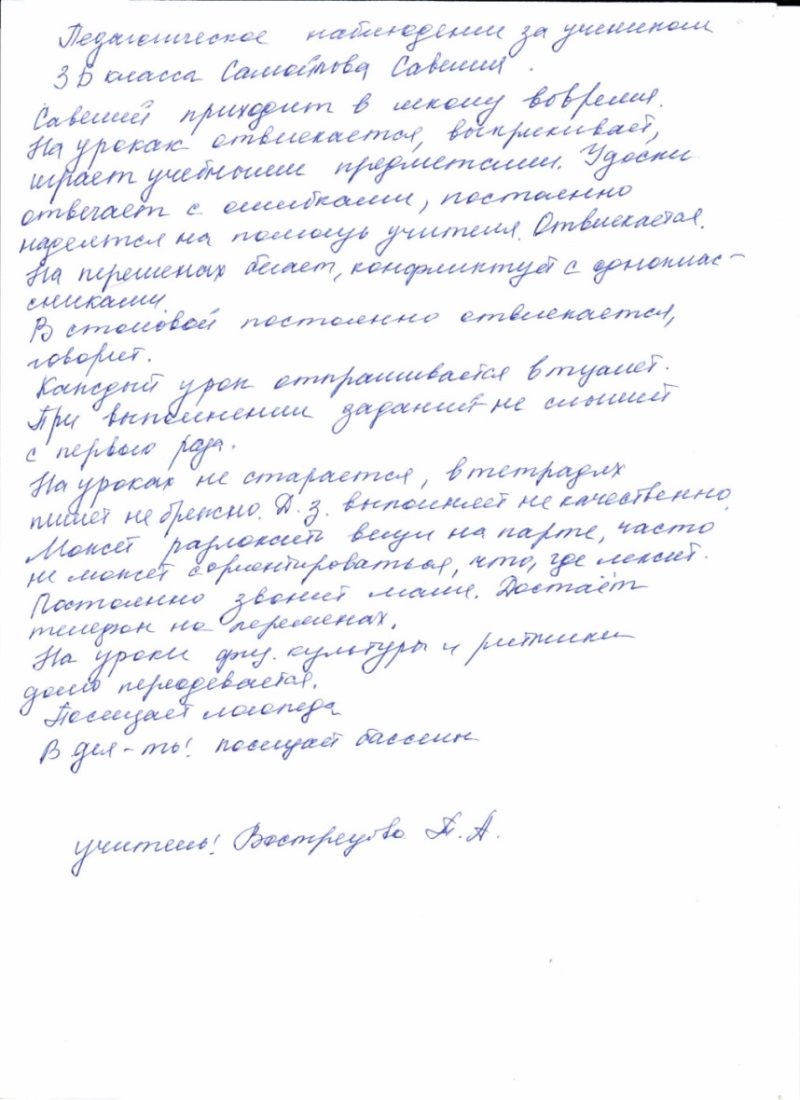 Педагогическое наблюдение за учеником
3 Б класса Самойлова Савелия.
Савелий приходит в школу вовремя.
На уроках отвлекается, выкрикивает,
играет учебными предметами. У доски
отвечает с ошибками, постоянно
надеятся на помощь учителя. Отвлекается.
На переменах бегает, конфликтует с одноклас-
сниками.
В столовой постоянно отвлекается,
говорит.
Каждый урок отпрашивается в туалет.
При выполнении заданий не слышит
с первого раза.
На уроках не старается, в тетрадях
пишет не брежно. Д.з. выполняет не качественно.
Может разложить вещи на парте, часто
не может сориентироваться, что, где лежит.
Постоянно звонит маме. Достаёт
телефон на переменах.
На уроки физ. культуры и ритмики
долго переодевается.
Посещает логопеда
В дея-ть! посещает бассейн
учитель! Вострецова Т. А.